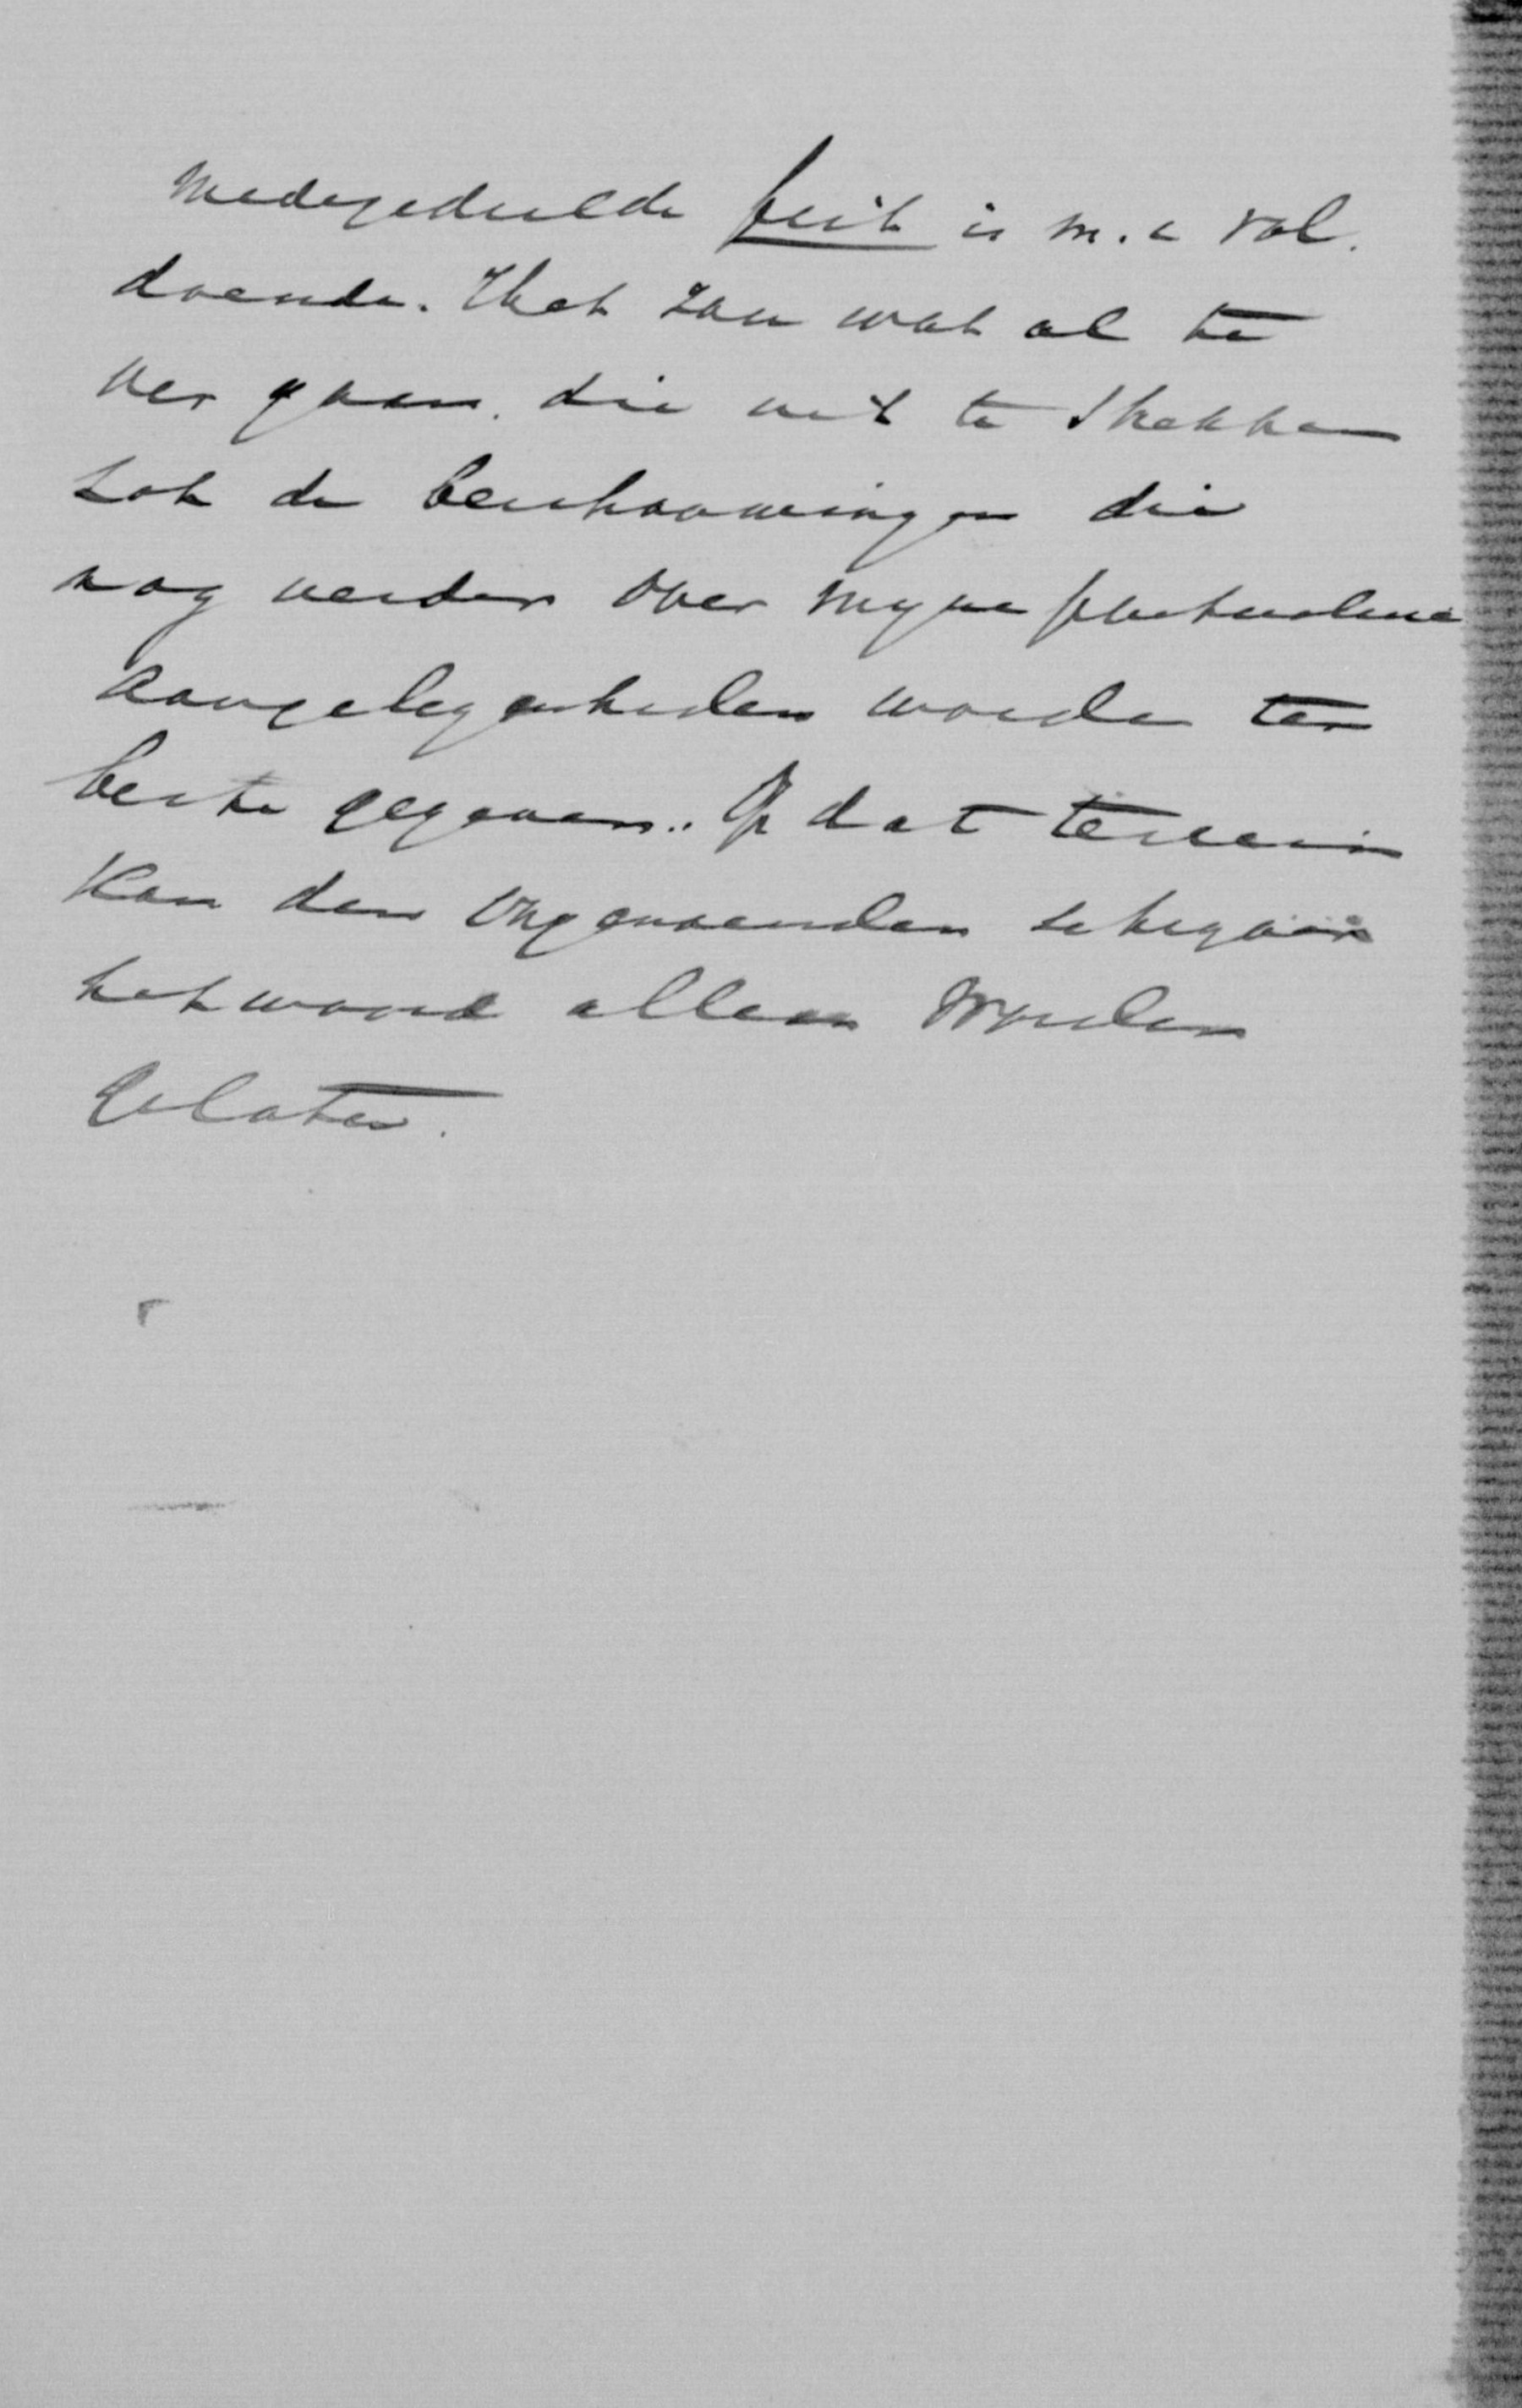 medegedeelde feit is m. i. vol.
doende. Het zou wat al te
ver gaan. die uit te strekken
tot de beschouwingen die
nog verder over myne
aangelegenheden worden ten
beste gegeven.. Op dat terrein
kan den ongenoemden schryver
het woord alleen worden
gelaten.